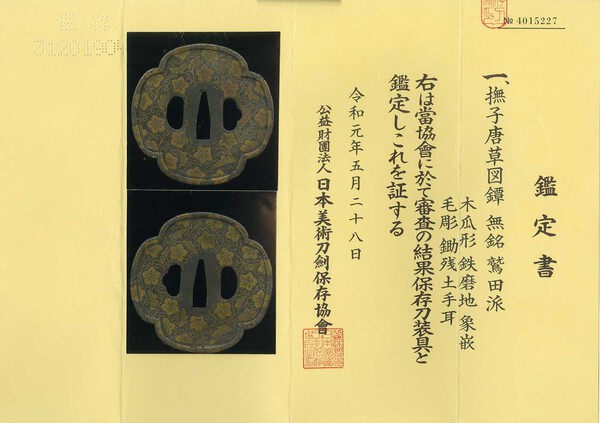 № 4015227
鑑定書
一、撫子唐草図鐔 無銘 鷲田派
木瓜形 鉄磨地 象嵌
毛彫 鋤残土手耳
右は當協會に於て審査の結果保存刀装具と
鑑定しこれを証する
令和元年五月二十八日
公益財團法人 日本美術刀劍保存協會